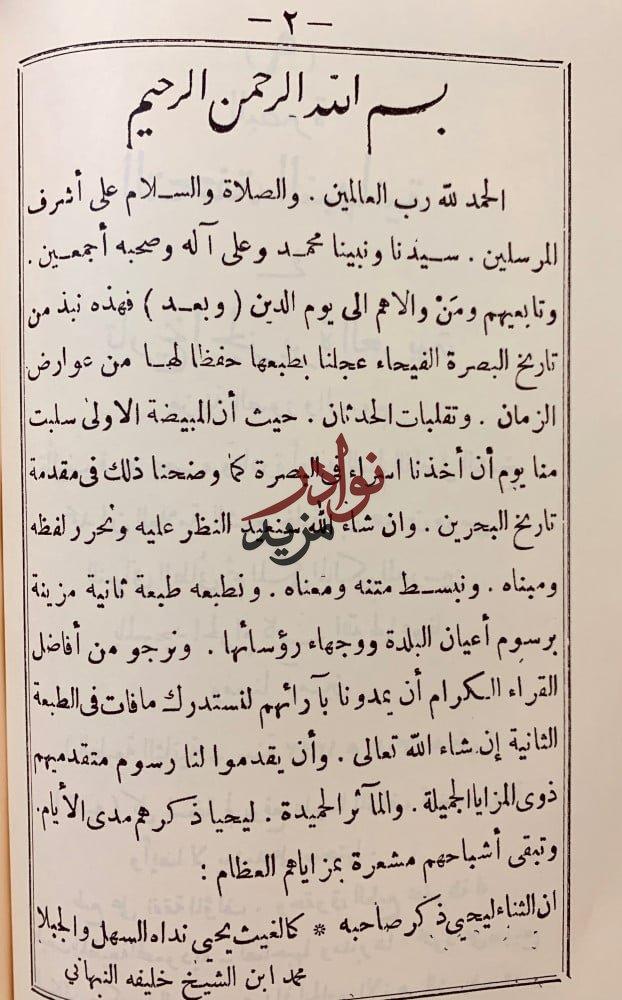 — ٢ —
بسم الله الرحمن الرحيم
الحمد لله رب العالمين . والصلاة والسلام على أشرف
المرسلين . سيدنا ونبينا محمد وعلى آله وصحبه أجمعين .
وتابعيهم ومَنْ والاهم الى يوم الدين ( وبعد ) فهذه نبذ من
تاريخ البصرة الفيحاء عجلنا بطبعها حفظا لها من عوارض
الزمان . وتقلبات الحدثان . حيث أن المبيضة الاولى سلبت
منا يوم أن أخذنا اسراء فى البصرة كما وضحنا ذلك فى مقدمة
تاريخ البحرين . وان شاء الله سنعيد النظر عليه ونحرر لفظه
ومبناه . ونبسط متنه ومعناه . ونطبعه طبعة ثانية مزينة
برسوم أعيان البلدة ووجهاء رؤسائها . ونرجو من أفاضل
القراء الكرام أن يمدونا بآرائهم لنستدرك مافات فى الطبعة
الثانية إن شاء الله تعالى . وأن يقدموا لنا رسوم متقدميهم
ذوى المزايا الجميلة . والمآثر الحميدة . ليحيا ذكرهم مدى الأيام .
وتبقى أشباحهم مشعرة بمزاياهم العظام :
ان الثناء ليحيي ذكر صاحبه * كالغيث يحيي نداه السهل والجبلا
محمد ابن الشيخ خليفه النبهاني
نوادر
مزيد